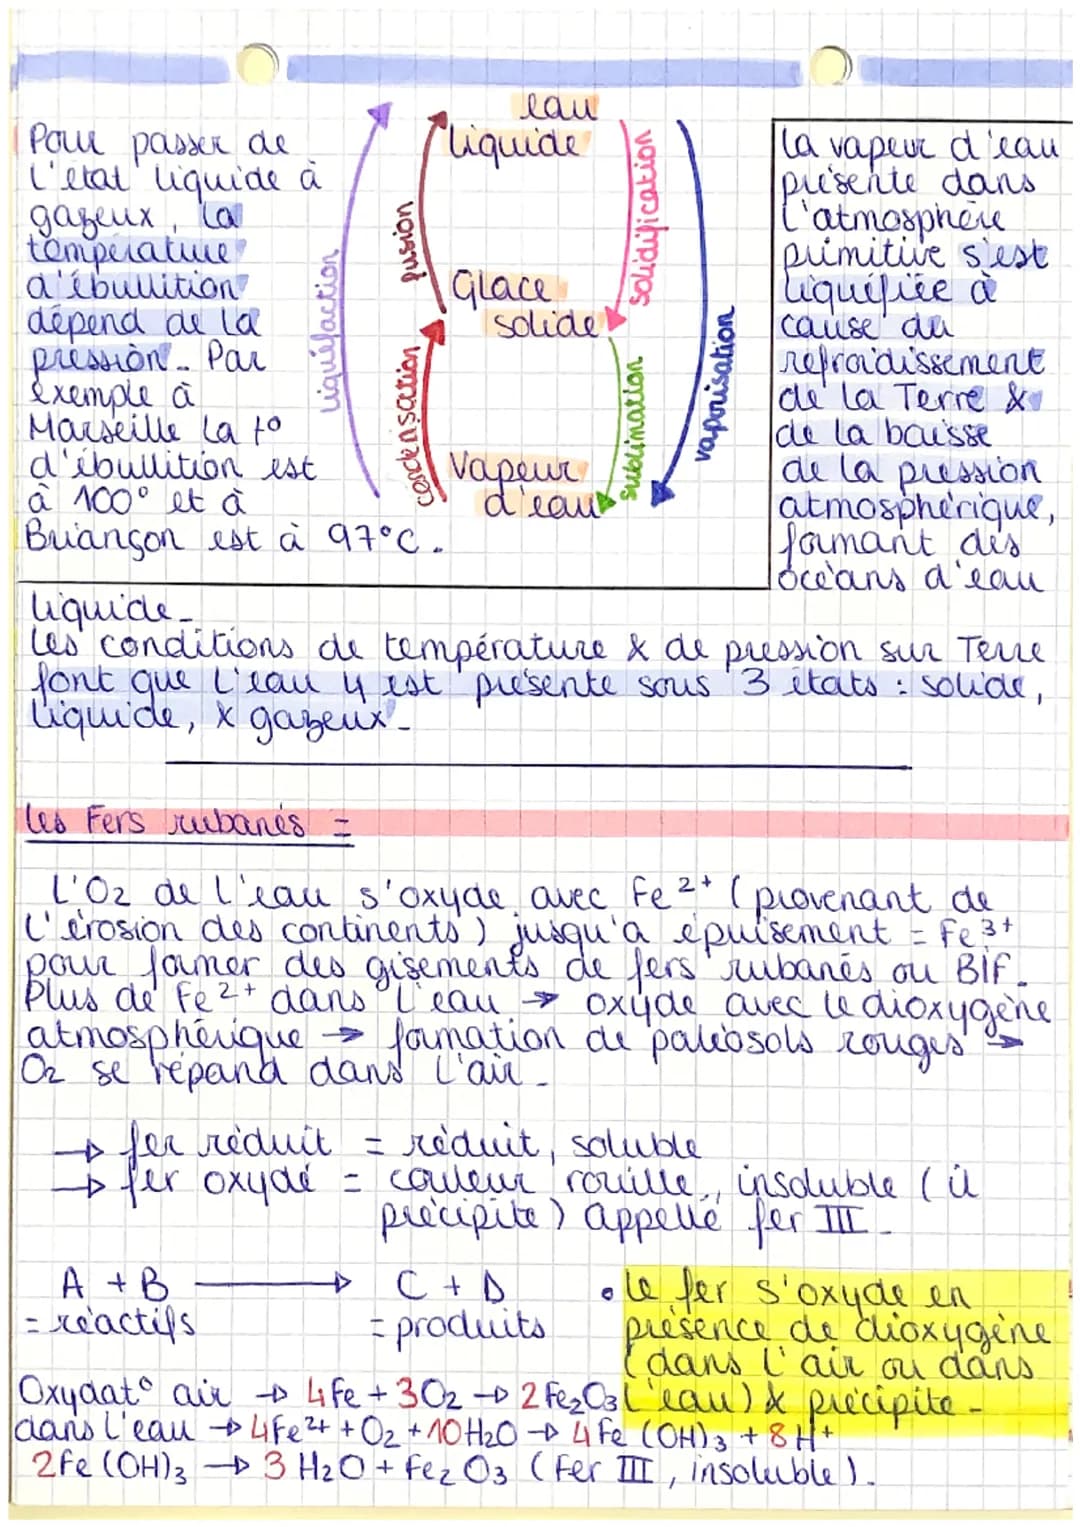 Pour passer de
l'état liquide à
gazeux, la
température
d'ébullition
dépend de la
pression. Par
exemple à
Marseille la t°
d'ébullition est
à 100° et à
Briançon est à 97°C.
liquéfaction
fusion
condensation
eau
liquide
Glace
solide
Vapeur
d'eau
solidification
sublimation
vaporisation
La vapeur d'eau
présente dans
l'atmosphère
primitive s'est
liquéfiée à
cause du
refroidissement
de la Terre &
de la baisse
de la pression
atmosphérique,
formant des
océans d'eau
liquide.
Les conditions de température & de pression sur Terre
font que l'eau y est présente sous 3 états : solide,
liquide, & gazeux.
Les Fers rubanés =
L'O2 de l'eau s'oxyde avec Fe2+ (provenant de
l'érosion des continents) jusqu'à épuisement = Fe3+
pour former des gisements de fers rubanés ou BIF.
Plus de Fe2+ dans l'eau → oxyde avec le dioxygène
atmosphérique → formation de paléosols rouges →
O2 se répand dans l'air.
→ fer réduit = réduit, soluble
→ fer oxydé = couleur rouille, insoluble (il
précipite) appellé fer III.
A + B → C + D
= réactifs = produits
• Le fer s'oxyde en
présence de dioxygène
(dans l'air ou dans
l'eau) & précipite.
Oxydat° air → 4Fe + 3O2 → 2Fe2O3
dans l'eau → 4Fe2+ + O2 + 10H2O → 4Fe(OH)3 + 8H+
2Fe(OH)3 → 3H2O + Fe2O3 (Fer III, insoluble).